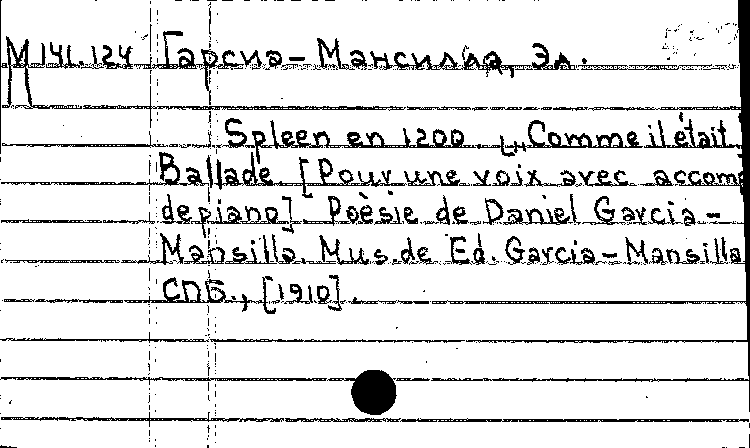 М 141.124 Гарсиа-Мансилла, Эл.
Spleen en 1200. „Comme il était
Ballade. [Pour une voix avec accom
de piano]. Poèsie de Daniel Garcia-
Mansilla. Mus. de Ed. Garcia-Mansilla
СПБ., [1910].